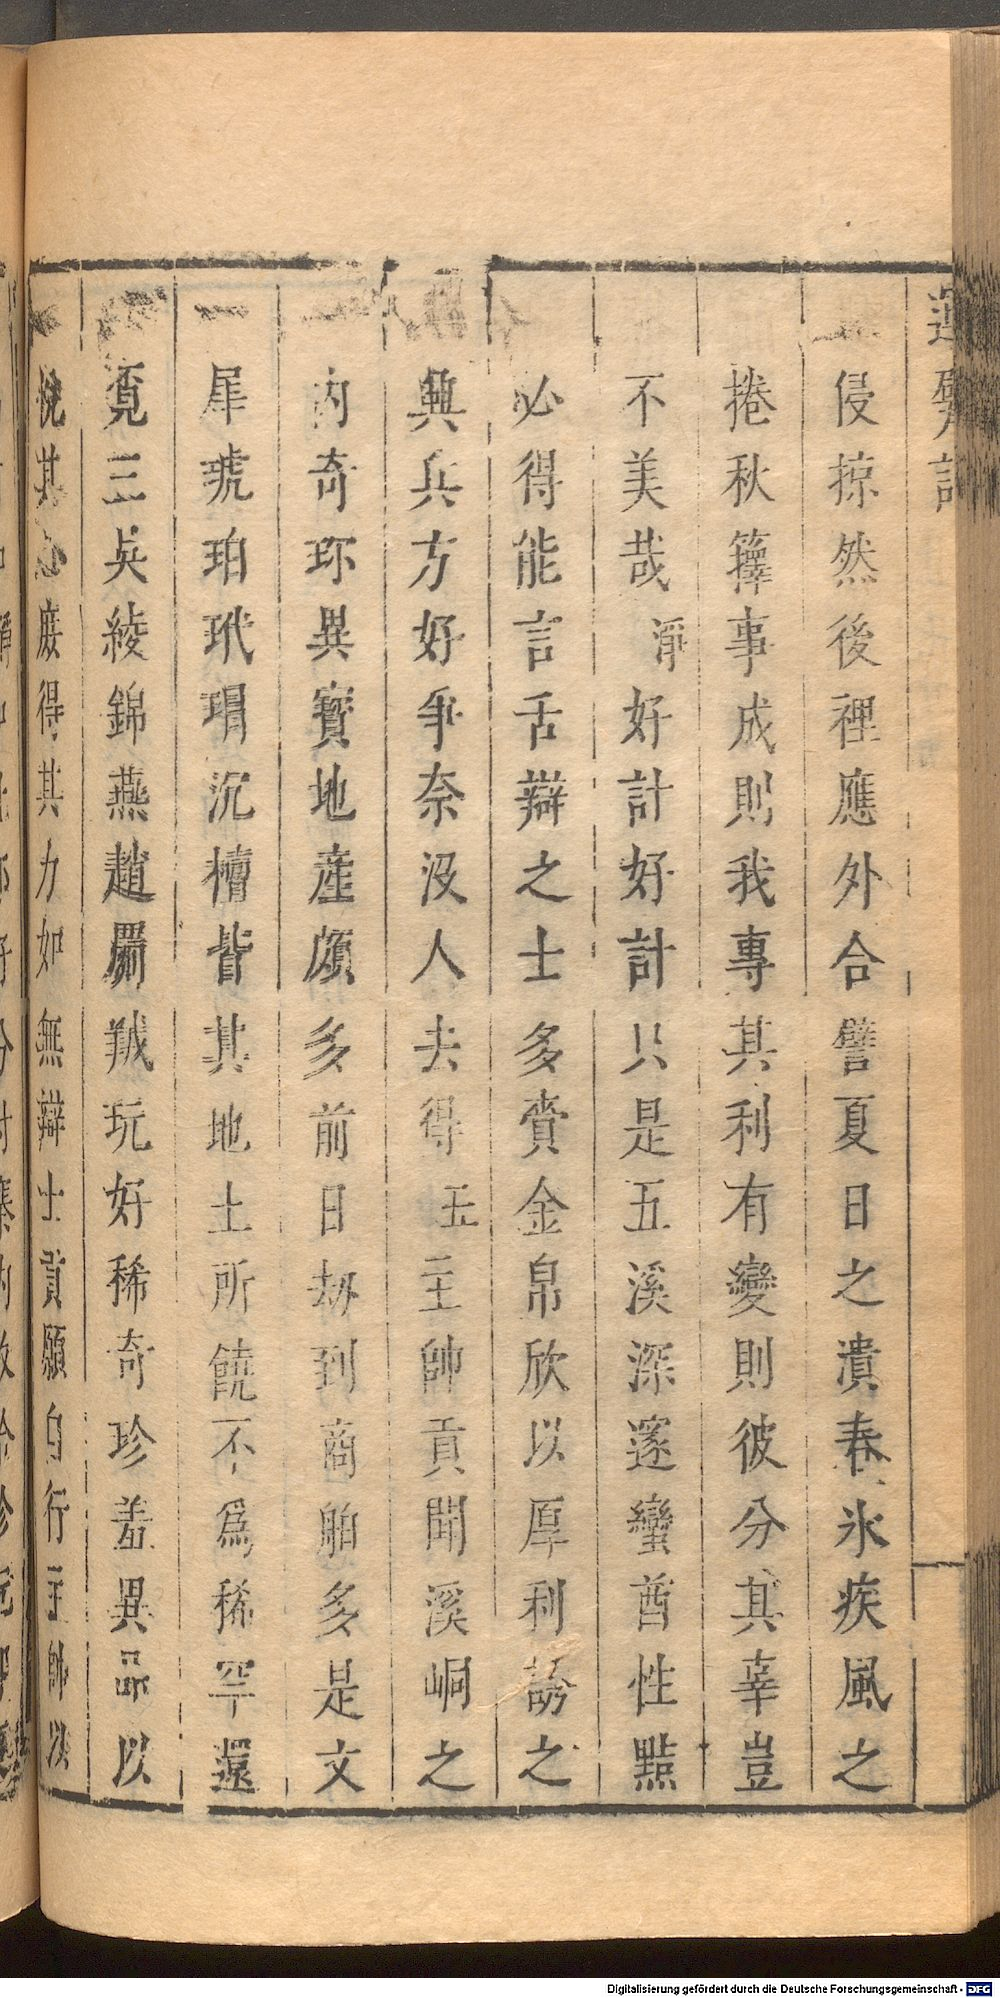 侵掠然後裡應外合譬夏日之潰春氷疾風之
捲秋籜事成則我專其利有變則彼分其辜豈
不美哉淨好計好計只是五溪深邃蠻酋性㸃
必得能言舌辯之士多賫金帛欣以厚利誘之
興兵方好爭奈沒人去得五主帥貢聞溪峒之
內奇珎異寶地産頗多前日刼到商舶多是文
犀琥珀玳瑁沉檀皆其地土所饒不爲稀罕還
覔三吳綾錦燕趙罽羢玩好稀奇珍羞異品以
悅其心庶得其力如無辯士貢願自行主帥以
Digitalisierung gefördert durch die Deutsche Forschungsgemeinschaft - DFG